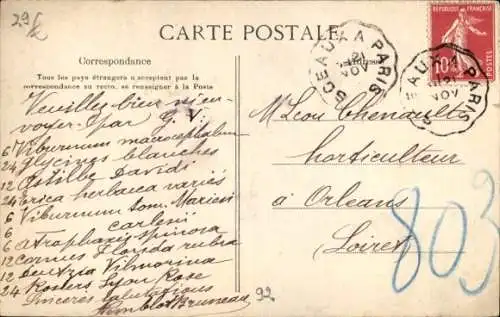 29 f
CARTE POSTALE
Correspondance
Tous les pays étrangers n'acceptent pas la
correspondance au recto, se renseigner à la Poste
SCEAUX A PARIS
21
NOV
REPUBLIQUE FRANÇAISE
10
POSTES
AUX A PARIS
NOV
Veuillez bien m'en-
voyer par G. V.
6 Viburnum macrocephalum
24 glycines blanches
12 Astilbe Davidi
24 Erica herbacea variés
6 Viburnum tom. Mariesi
6 carlesii
6 Atraphaxis spinosa
12 cornus Florida rubra
12 Deutzia Vilmorinæ
24 Rosiers Lyon Rose
Sinceres salutations
Humblot Bruneau
M. Léon Chenault
horticulteur
à Orléans
Loiret
803
92